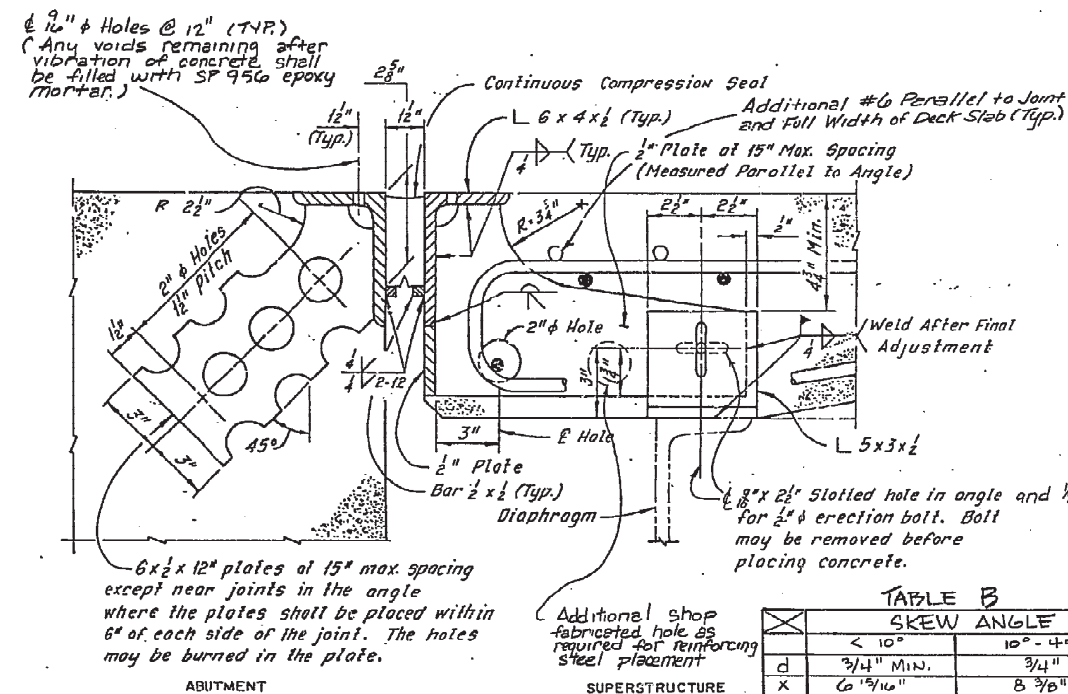 ℄ 9/16" φ Holes @ 12" (TYP.)
(Any voids remaining after
vibration of concrete shall
be filled with SP 956 epoxy
mortar.)
2 5/8"
1 1/2"
(Typ.)
1 1/2"
Continuous Compression Seal
L 6 x 4 x 1/2 (Typ.)
Additional #6 Parallel to Joint
and Full Width of Deck Slab (Typ.)
1/4
Typ.
1/2" Plate at 15" Max. Spacing
(Measured Parallel to Angle)
R 2 1/2"
R=3 3/4"
2 1/2"
2 1/2"
1/2"
4 3/4" Min.
2" φ Holes
1 1/2" Pitch
1 1/2"
3"
3"
45°
2" φ Hole
1/4
1/4
2-12
3"
1 3/4"
1/4
Weld After Final
Adjustment
3"
℄ Hole
L 5 x 3 x 1/2
1/2" Plate
Bar 1/2 x 1/2 (Typ.)
Diaphragm
℄ 9/16" x 2 1/2" Slotted hole in angle and
for 1/2" φ erection bolt. Bolt
may be removed before
placing concrete.
6 x 1/2 x 12" plates at 15" max. spacing
except near joints in the angle
where the plates shall be placed within
6" of each side of the joint. The holes
may be burned in the plate.
Additional shop
fabricated hole as
required for reinforcing
steel placement
TABLE B
SKEW ANGLE
< 10°
10° - 4
d 3/4" MIN. 3/4"
x 6 15/16" 8 3/8"
ABUTMENT
SUPERSTRUCTURE